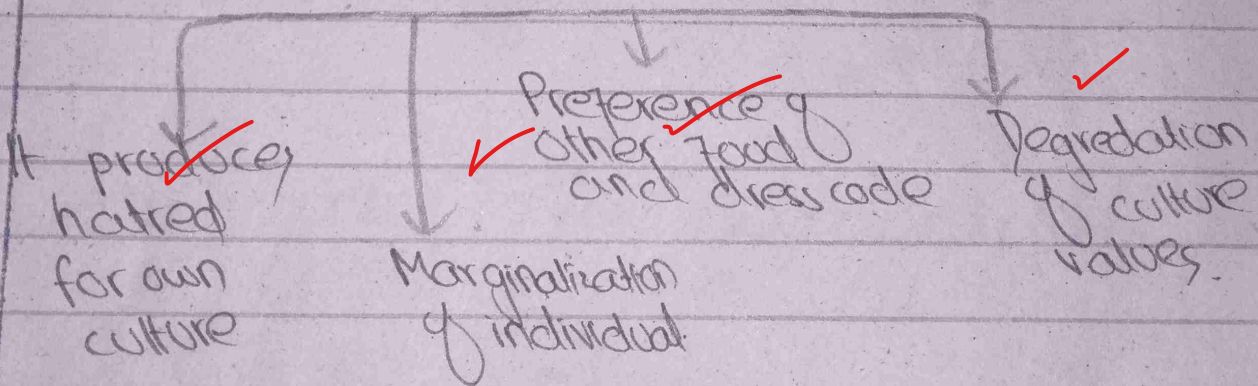 It produces
hatred
for own
culture
Marginalization
of individual
Preference of
other food
and dress code
Degredation
of culture
values.